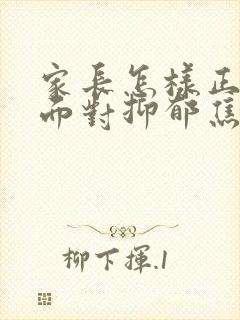 家長怎樣正
而對抑郁焦
柳下揮.1